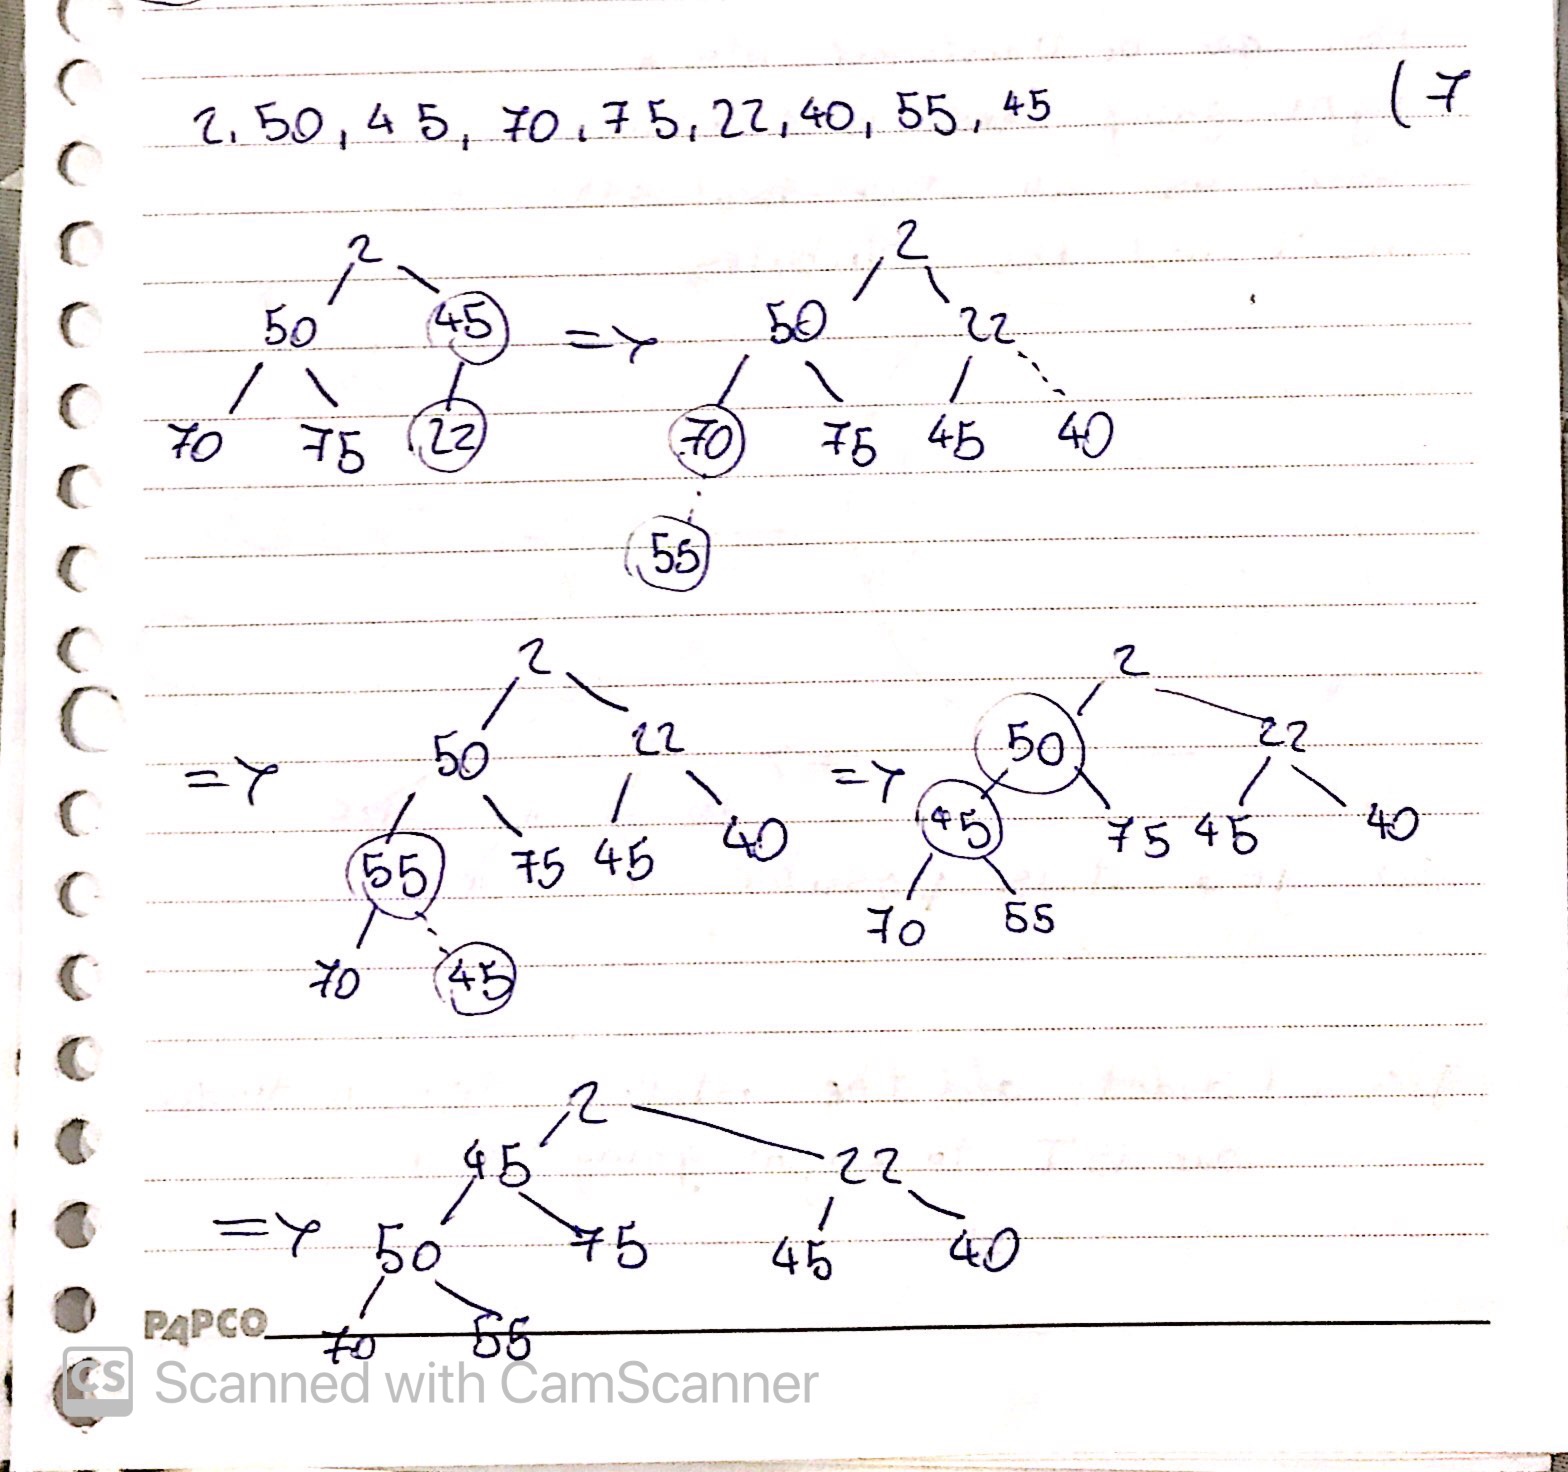 2, 50, 45, 70, 75, 22, 40, 55, 45 (7
2 2
50 45 => 50 22
70 75 22 70 75 45 40
55
2 2
=> 50 22 => 50 22
55 75 45 40 45 75 45 40
70 45 70 55
2
45 22
=> 50 75 45 40
70 55
PAPCO
CS Scanned with CamScanner